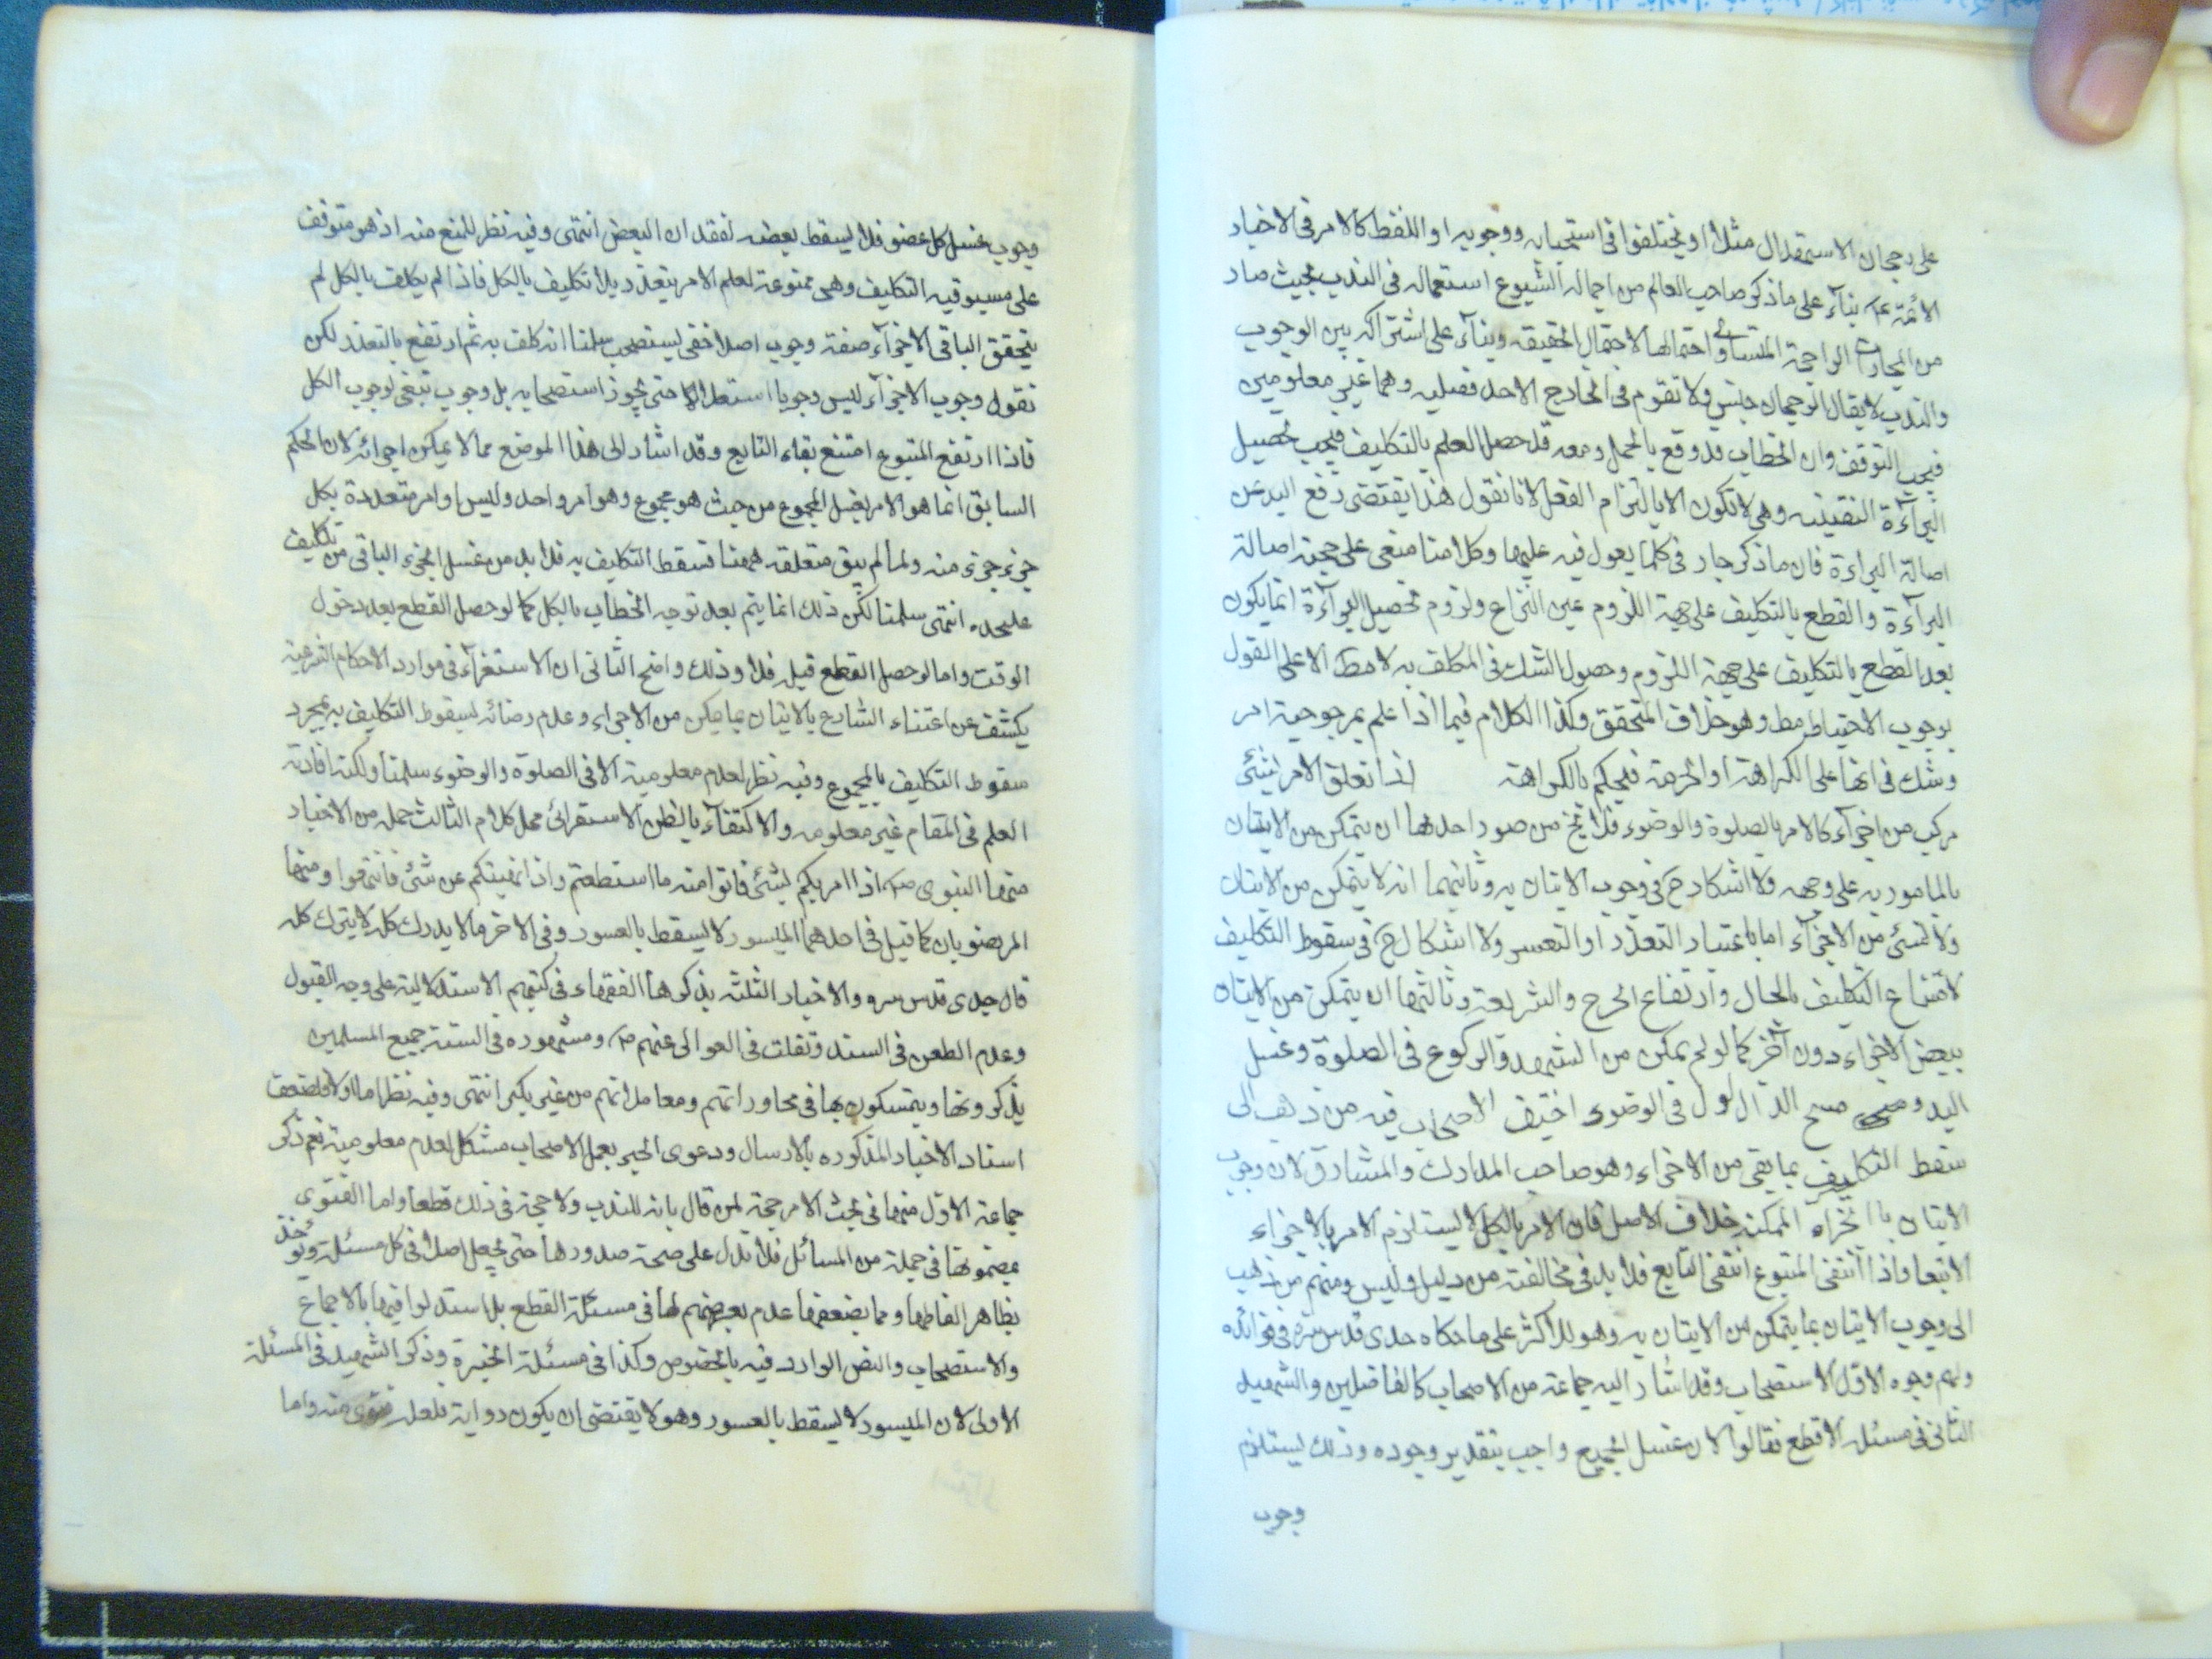 على رجحان الاستقلال مثلا او يختلفوا فى استحبابه ووجوبه او اللفظ كالامر فى الاخبار
الائمة ع بناء على ما ذكر صاحب العالم من اجمال الشيوع استعماله فى الندب بحيث صار
من المجازات الراجحة المتساوى احتمالها لاحتمال الحقيقه وبناء على اشتراكه بين الوجوب
والندب لا يقال الرجحان جنس ولا تقوم فى الخارج الا احد فصليه وهما غير معلومين
فيجب التوقف وان الخطاب قد وقع بالمجمل ومعه قد حصل العلم بالتكليف فيجب تحصيل
البرآءة اليقينيه وهى لا تكون الا بالتزام الفعل لانا نقول هذا يقتضى رفع اليد عن
اصالة البراءة فان ما ذكر جار فى كلما يعول فيه عليها وكلامنا مبنى على حجية اصالة
البرآءة والقطع بالتكليف على جهة اللزوم عين النزاع ولزوم تحصيل البرآءة انما يكون
بعد القطع بالتكليف على جهة اللزوم وحصول الشك فى المكلف به لا مط الا على القول
بوجوب الاحتياط مط وهو خلاف المتحقق وكذا الكلام فيما اذا علم بمرجوحية امر
وشك فى انها على الكراهة او الحرمة فيحكم بالكراهة اذا تعلق الامر بشئ
مركب من اجزآء كالامر بالصلوة والوضوء فلا يخ من صور احدها ان يتمكن من الاتيان
بالمامور به على وجهه ولا اشكال ح فى وجوب الاتيان به وثانيهما انه لا يتمكن من الاتيان
ولا لشئ من الاجزآء اما باعتبار التعذر او التعسر ولا اشكال ح فى سقوط التكليف
لامتناع التكليف بالمحال وارتفاع الحرج والشريعة وثالثها ان يتمكن من الاتيان
ببعض الاجزاء دون آخر كما لو لم يمكن من التشهد والركوع فى الصلوة وغسل
اليد ومسح فى الوضوء اختلف الاصحاب فيه من ذهب الى
سقط التكليف بما بقى من الاجزاء وهو صاحب المدارك والمشارق لان وجوب
الاتيان بالاجزاء الممكنه خلاف الاصل فان الامر بالكل لا يستلزم الامر بالاجزاء
الا تبعا واذا انتفى المتبوع انتفى التابع فلا بد فى مخالفته من دليل وليس ومنهم من ذهب
الى وجوب الاتيان بما يتمكن من الاتيان به وهو للاكثر على ما حكاه جدى قدس سره فى فوائده
ولهم وجوه الاول الاستصحاب وقد اشار اليه جماعة من الاصحاب كالفاضلين والشهيد
الثانى فى مسئلة الاقطع فقالوا لان غسل الجميع واجب بتقدير وجوده وذلك يستلزم
وجوب
وجوب غسل كل عضو فلا يسقط بعضه لفقدان البعض انتهى وفيه نظر للمنع منه اذ هو متوقف
على مسبوقيه التكليف وهى ممنوعة لعلم الامر بتعذر بلا تكليف بالكل فاذا لم يكلف بالكل لم
يتحقق الباقى الاجزآء صفة وجوب اصلا حتى يستصحب سلمنا انه كلف به ثم ارتفع بالتعذر لكن
نقول وجوب الاجزآء ليس وجوبا استقلاليا حتى يجوز استصحابه بل وجوب تبعى لوجوب الكل
فاذا ارتفع المتبوع امتنع بقاء التابع وقد اشار الى هذا الموضع مما لا يمكن اجرائه لان الحكم
السابق انما هو الامر بغسل المجموع من حيث هو مجموع وهو امر واحد وليس اوامر متعددة بكل
جزء جزء منه ولما لم يبق متعلقه ههنا فسقط التكليف به فلا بد من غسل الجزء الباقى من تكليف
عليحده انتهى سلمنا لكن ذلك انما يتم بعد توجه الخطاب بالكل كما لو حصل القطع بعد دخول
الوقت واما لو حصل القطع قبله فلا وذلك واضح الثانى ان الاستقرآء فى موارد الاحكام الشرعية
يكشف عن اعتناء الشارع بالاتيان بما يمكن من الاجزاء وعدم رضائه لسقوط التكليف به بمجرد
سقوط التكليف بالمجموع وفيه نظر لعدم معلومية الا فى الصلوة والوضوء سلمنا ولكنه افادته
العلم فى المقام غير معلومه والاكتفآء بالظن الاستقرائى محل كلام الثالث جملة من الاخبار
منها النبوى ص اذا امرتكم بشئ فاتوا منه ما استطعتم واذا نهيتكم عن شئ فانتهوا ومنها
المرتضويان كما قيل فى احدهما الميسور لا يسقط بالعسور وفى الاخر ما لا يدرك كله لا يترك كله
قال جدى قدس سره والاخبار الثلثه يذكرها الفقهاء فى كتبهم الاستدلالية على وجه القبول
وعدم الطعن فى السند ونقلت فى العوالى عنهم ص ومشهوره فى السنة جميع المسلمين
يذكرونها ويتمسكون بها فى محاوراتهم ومعاملاتهم من غير نكير انتهى وفيه نظر اما اولا فلضعف
اسناد الاخبار المذكوره بالارسال ودعوى الجبر بعمل الاصحاب مشكل لعدم معلومية نعم ذكر
جماعة الاول منها فى بحث الامر حجة لمن قال بانه للندب ولا حجة فى ذلك قطعا واما الفتوى
بمضمونها فى جملة من المسائل فلا تدل على صحة صدورها حتى يجعل اصلا فى كل مسئلة ويؤخذ
بظاهر الفاظها ومما يضعفها عدم بعضهم لها فى مسئلة القطع بل استدلوا فيها بالاجماع
والاستصحاب والنص الوارد فيه بالخصوص وكذا فى مسئلة الجبيرة وذكر الشهيد فى المسئلة
الاولى لان الميسور لا يسقط بالعسور وهو لا يقتضى ان يكون رواية فلعله فتوى منه واما